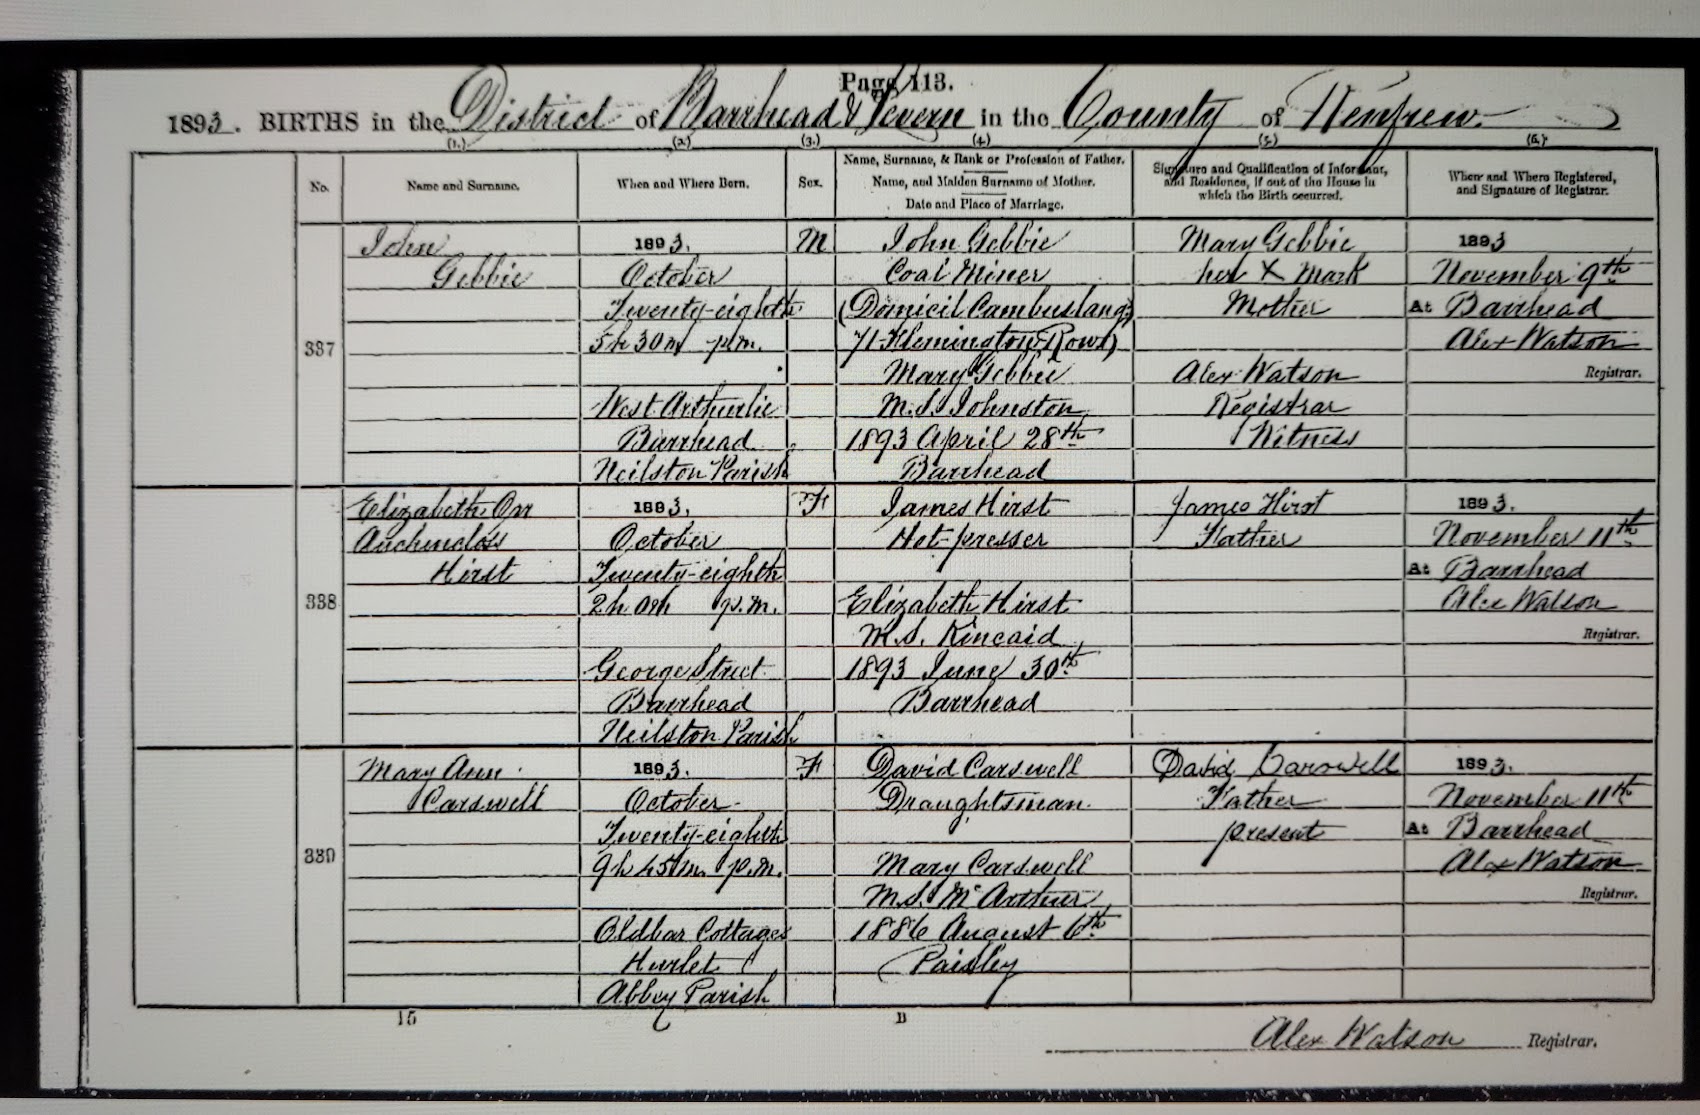 Page 113.
1893. BIRTHS in the District of Barrhead & Levern in the County of Renfrew.
(1.) (2.) (3.) (4.) (5.) (6.)
No. Name and Surname. When and Where Born. Sex. Name, Surname, & Rank or Profession of Father. Name, and Maiden Surname of Mother. Date and Place of Marriage. Signature and Qualification of Informant, and Residence, if out of the House in which the Birth occurred. When and Where Registered, and Signature of Registrar.
337
John
Gebbie
1893.
October
Twenty-eighth
5h 30m p.m.
West Arthurlie
Barrhead
Neilston Parish
M
John Gebbie
Coal Miner
(Domicil Cambuslang
71 Flemington Rows)
Mary Gebbie
M.S. Johnston
1893 April 28th
Barrhead
Mary Gebbie
her X Mark
Mother
Alex Watson
Registrar
Witness
1893
November 9th
At Barrhead
Alex Watson
Registrar.
338
Elizabeth Orr
Auchincloss
Hirst
1893.
October
Twenty-eighth
2h 0m p.m.
George Street
Barrhead
Neilston Parish
F
James Hirst
Hot-presser
Elizabeth Hirst
M.S. Kincaid
1893 June 30th
Barrhead
James Hirst
Father
1893.
November 11th
At Barrhead
Alex Watson
Registrar.
339
Mary Ann
Carswell
1893.
October
Twenty-eighth
9h 45m. p.m.
Oldbar Cottages
Hurlet
Abbey Parish
F
David Carswell
Draughtsman
Mary Carswell
M.S. McArthur
1886 August 6th
Paisley
David Carswell
Father
present
1893.
November 11th
At Barrhead
Alex Watson
Registrar.
15 B
Alex Watson Registrar.